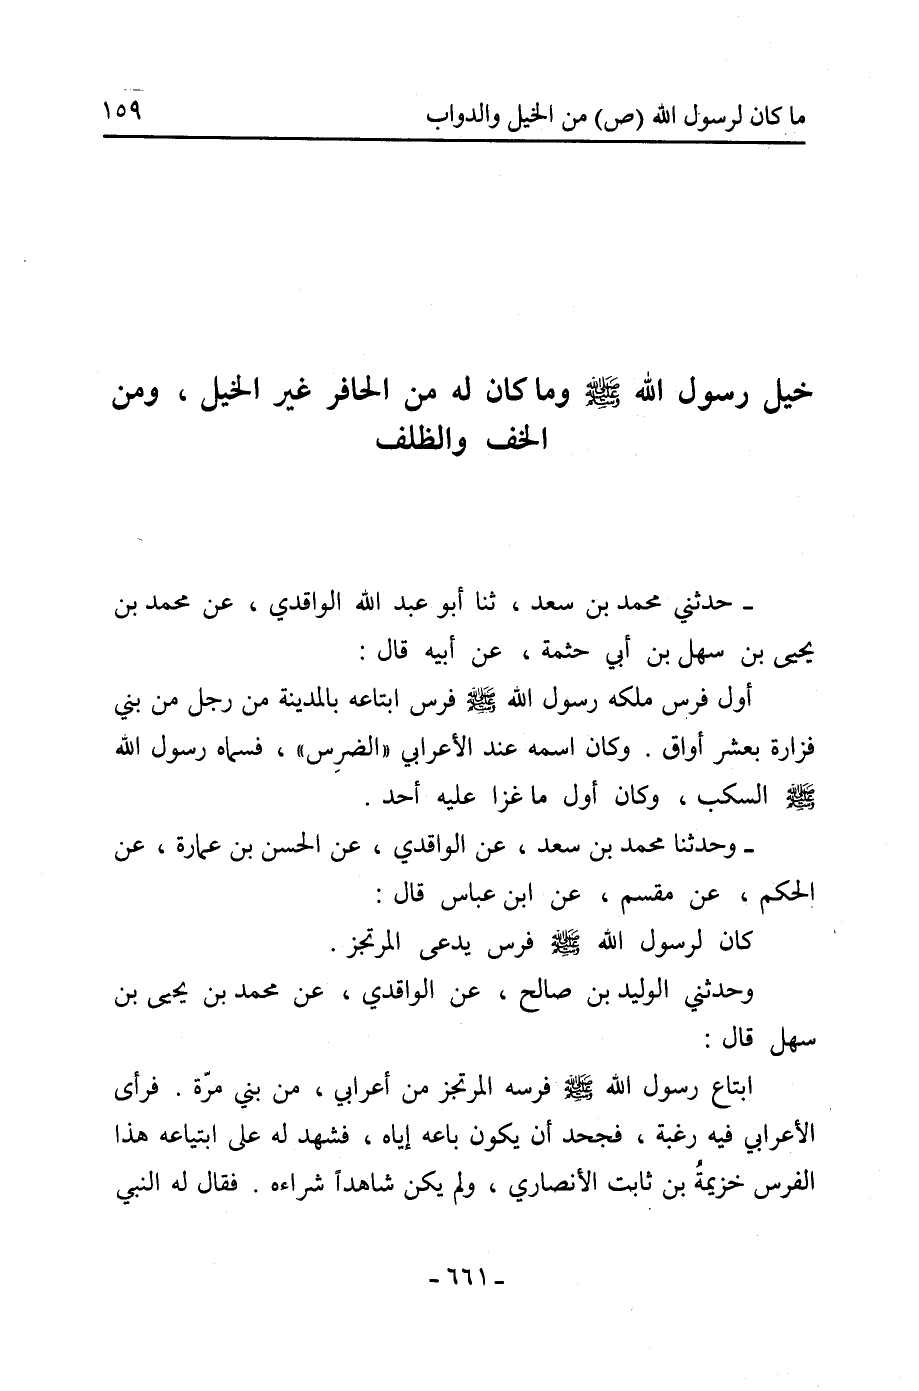 ما كان لرسول الله (ص) من الخيل والدواب ١٥٩
خيل رسول الله ﷺ وما كان له من الحافر غير الخيل ، ومن
الخف والظلف
ـ حدثني محمد بن سعد ، ثنا أبو عبد الله الواقدي ، عن محمد بن
يحيى بن سهل بن أبي حثمة ، عن أبيه قال :
أول فرس ملكه رسول الله ﷺ فرس ابتاعه بالمدينة من رجل من بني
فزارة بعشر أواق . وكان اسمه عند الأعرابي «الضرِس» ، فسماه رسول الله
ﷺ السكب ، وكان أول ما غزا عليه أحد .
ـ وحدثنا محمد بن سعد ، عن الواقدي ، عن الحسن بن عمارة ، عن
الحكم ، عن مقسم ، عن ابن عباس قال :
كان لرسول الله ﷺ فرس يدعى المرتجز .
وحدثني الوليد بن صالح ، عن الواقدي ، عن محمد بن يحيى بن
سهل قال :
ابتاع رسول الله ﷺ فرسه المرتجز من أعرابي ، من بني مرّة . فرأى
الأعرابي فيه رغبة ، فجحد أن يكون باعه إياه ، فشهد له على ابتياعه هذا
الفرس خزيمةُ بن ثابت الأنصاري ، ولم يكن شاهداً شراءه . فقال له النبي
ـ ٦٦١ ـ